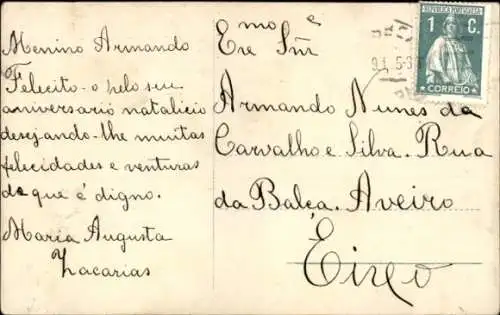 Menino Armando
Felecito-o pelo seu
aniversario natalicio
desejando-lhe muitas
felicidades e venturas
de que é digno.
Maria Augusta
Zacarias
Exmo e
Snr
Armando Nunes da
Carvalho e Silva. Rua
da Balça. Aveiro
Eixo
REPUBLICA PORTUGUESA
1 C.
CORREIO